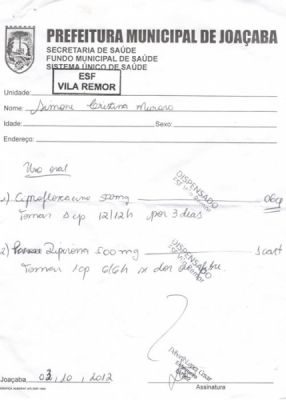 PREFEITURA MUNICIPAL DE JOAÇABA
SECRETARIA DE SAÚDE
FUNDO MUNICIPAL DE SAÚDE
SISTEMA ÚNICO DE SAÚDE
ESF
VILA REMOR
Unidade:
Nome: Simone Cristina
Idade: Sexo:
Endereço:
Uso oral
1) Ciprofloxacino 500mg
Tomar 1 cp 12/12h por 3 dias
DISPENSADO
2) Dipirona 500mg
Tomar 1cp 6/6h dor
DISPENSADO
Joaçaba 03, 10, 2012
Assinatura